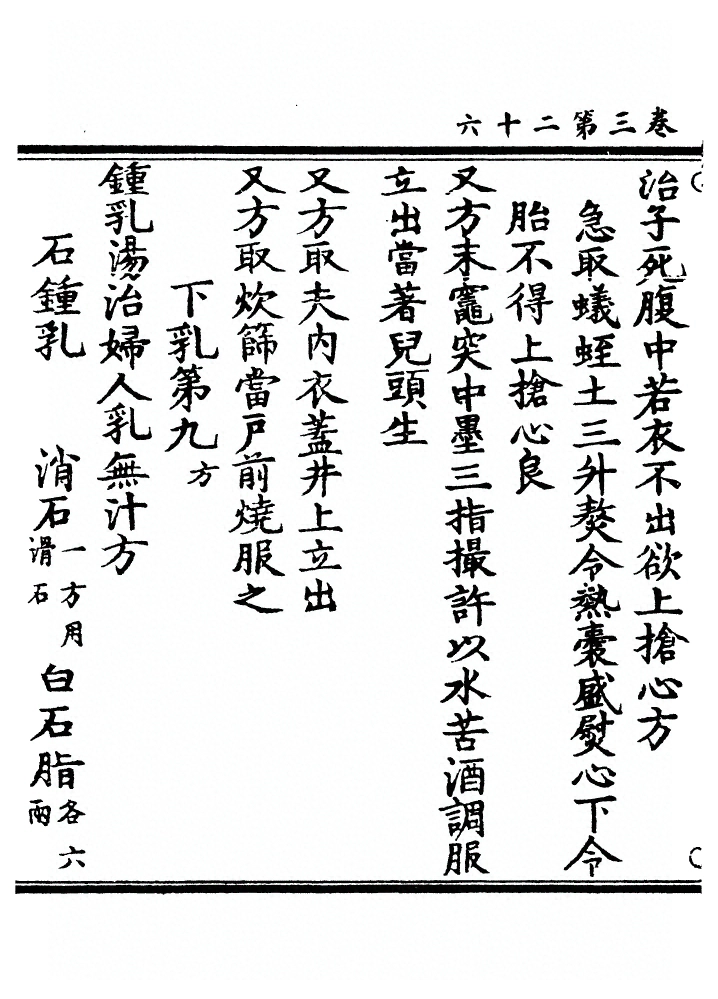 卷三第二十六
治子死腹中若衣不出欲上搶心方
急取蟻蛭土三升熬令熱囊盛熨心下令
胎不得上搶心良
又方末竈突中墨三指撮許以水苦酒調服
立出當著兒頭生
又方取夫內衣蓋井上立出
又方取炊篩當戶前燒服之
下乳第九方
鍾乳湯治婦人乳無汁方
石鍾乳 消石一方用滑石 白石脂各六兩